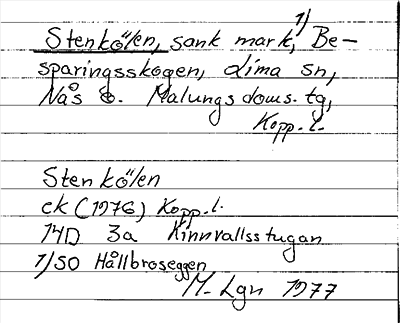 Stenkölen, sank mark, 1) Be-
sparingsskogen, Lima sn,
Nås o. Malungs doms. tg,
Kopp. l.
Stenkölen
ek (1976) Kopp. l.
14D 3a Kinnvallsstugan
1) SO Hållbroseggen
M. Lgn 1977